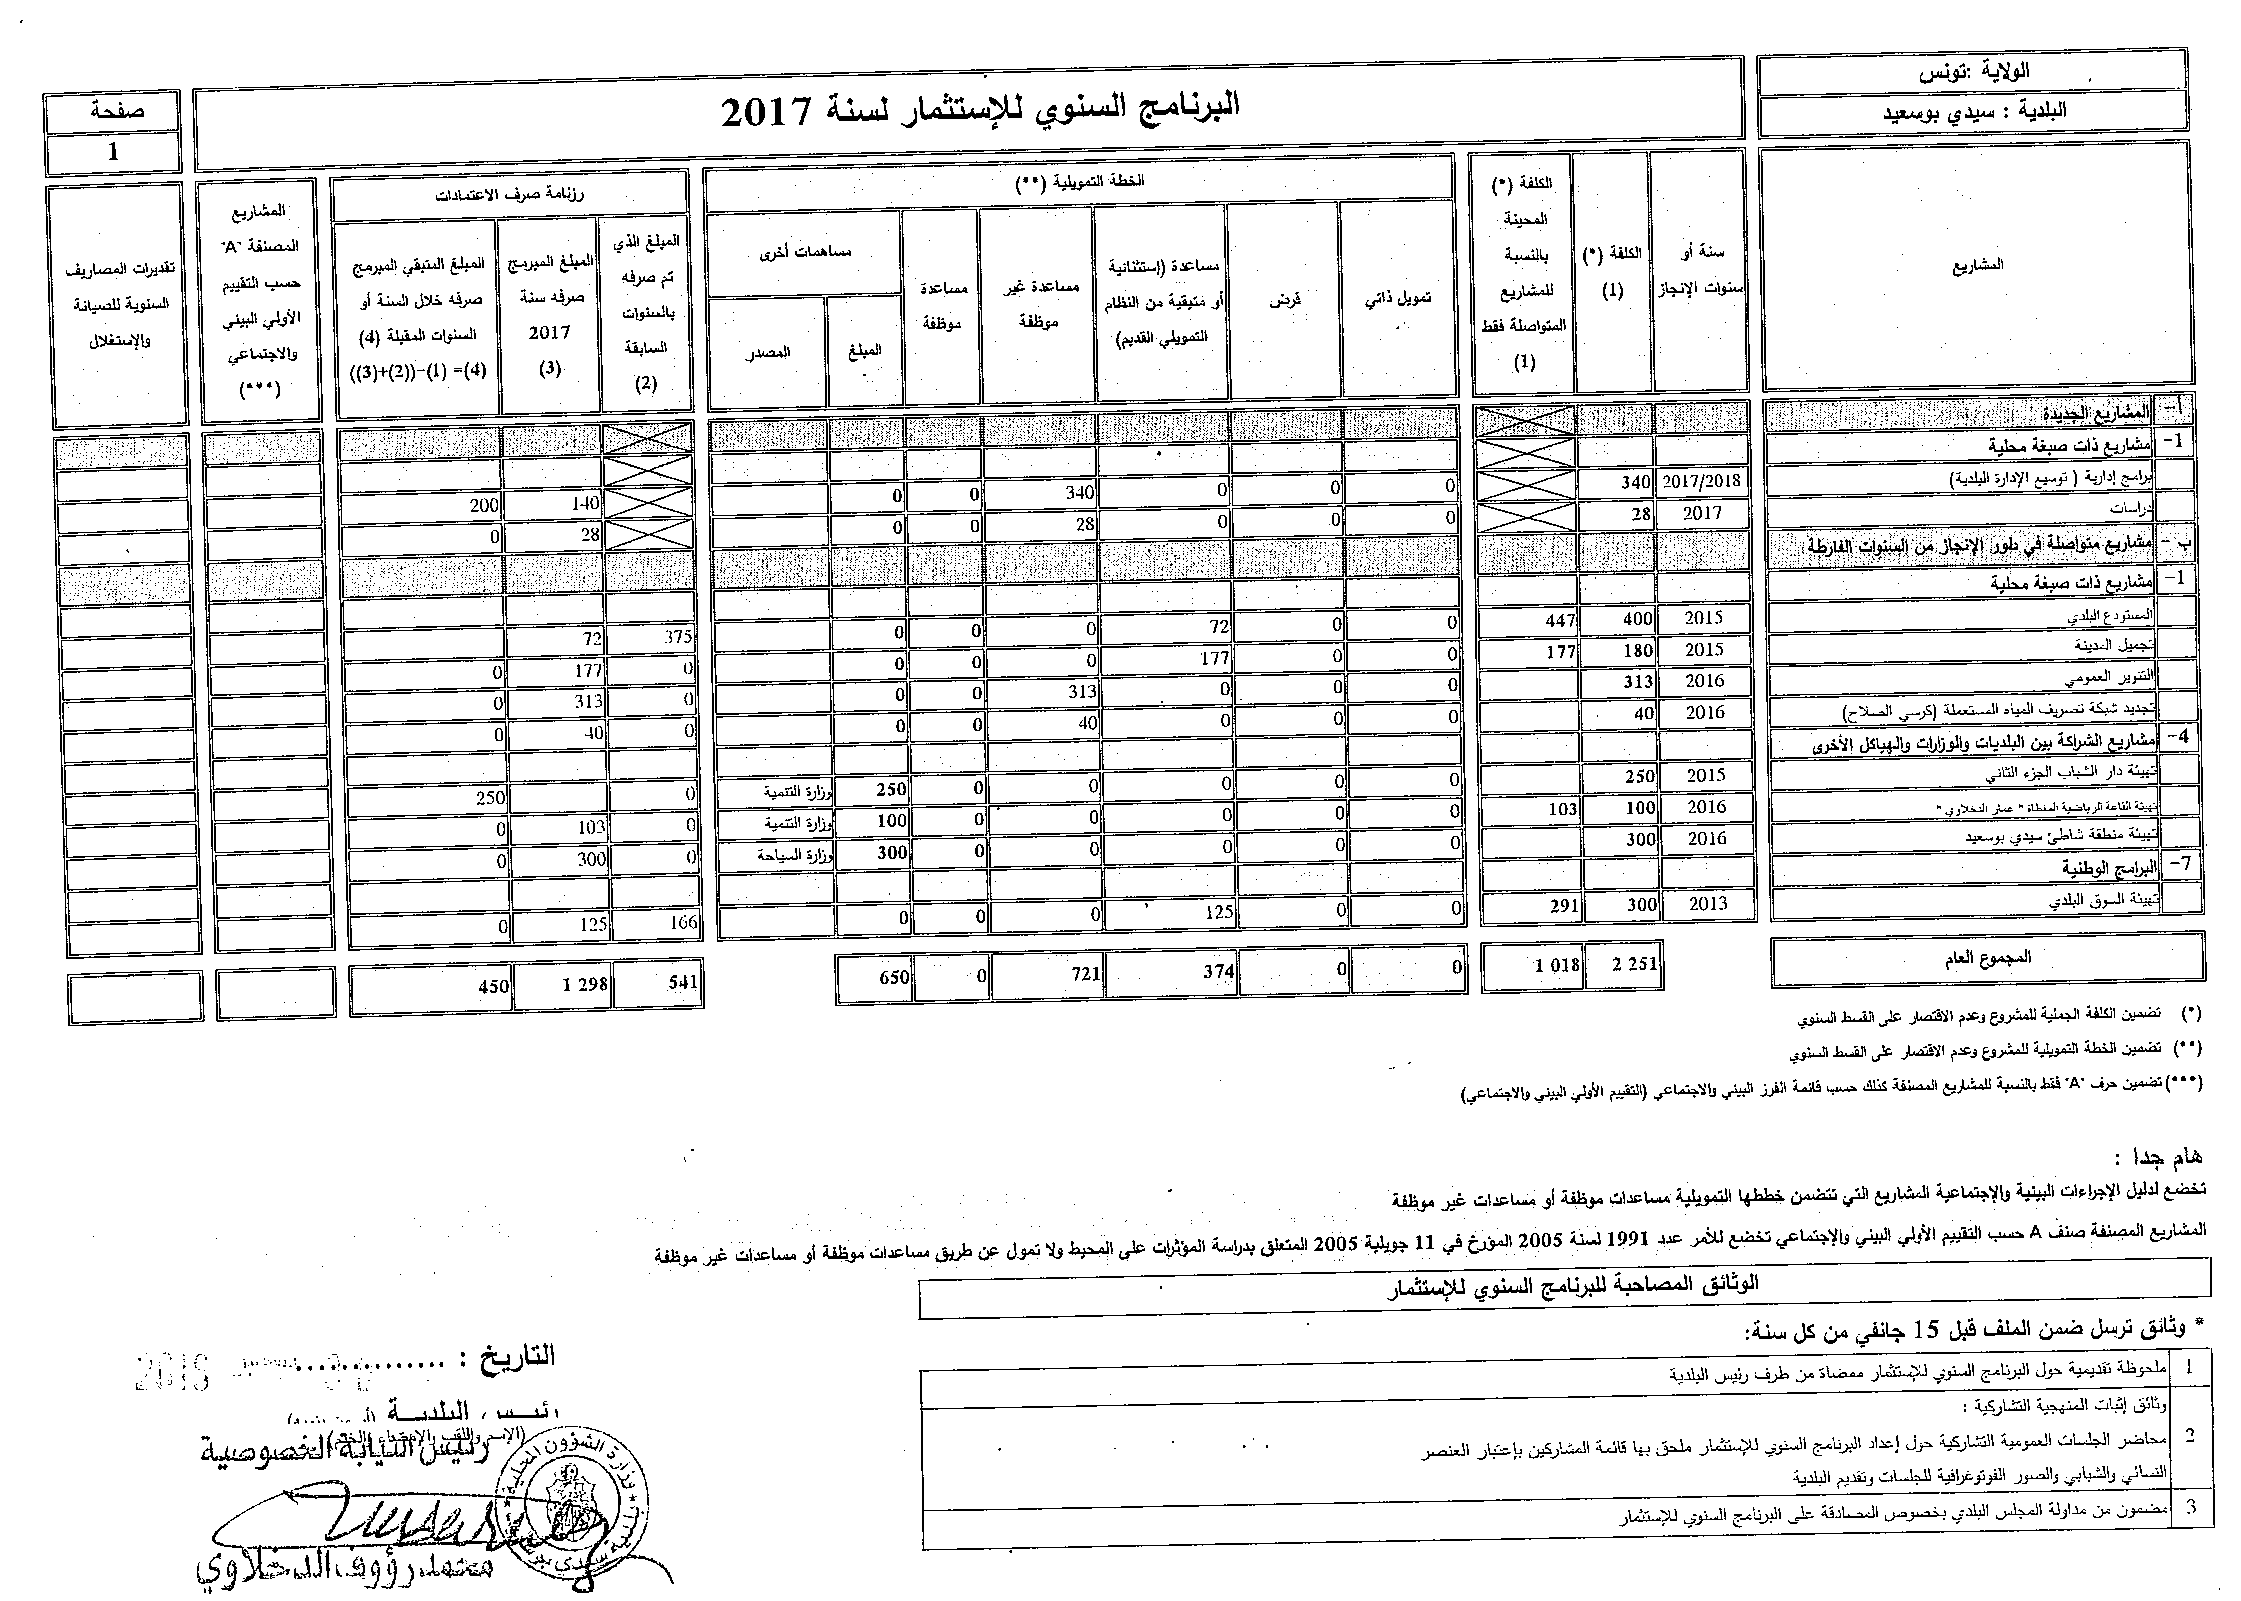 الولاية :تونس
البلدية : سيدي بوسعيد
البرنامج السنوي للإستثمار لسنة 2017
صفحة
1
المشاريع
سنة أو سنوات الإنجاز
الكلفة (*) (1)
الكلفة (*) المحينة بالنسبة للمشاريع المتواصلة فقط (1)
الخطة التمويلية (**)
تمويل ذاتي
قرض
مساعدة (إستثنائية أو متبقية من النظام التمويلي القديم)
مساعدة غير موظفة
مساعدة موظفة
مساهمات أخرى
المبلغ
المصدر
رزنامة صرف الاعتمادات
المبلغ الذي تم صرفه بالسنوات السابقة (2)
المبلغ المبرمج صرفه سنة 2017 (3)
المبلغ المتبقي المبرمج صرفه خلال السنة أو السنوات المقبلة (4) (4)= (1)-((2)+(3))
المشاريع المصنفة "A" حسب التقييم الأولي البيئي والاجتماعي (***)
تقديرات المصاريف السنوية للصيانة والإستغلال
أ- المشاريع الجديدة
1- مشاريع ذات صبغة محلية
برامج إدارية ( توسيع الإدارة البلدية) 2017/2018 340 0 0 0 340 0 0 140 200
دراسات 2017 28 0 0 0 28 0 0 28 0
ب - مشاريع متواصلة في طور الإنجاز من السنوات الفارطة
1- مشاريع ذات صبغة محلية
المستودع البلدي 2015 400 447 0 0 72 0 0 0 375 72
تجميل المدينة 2015 180 177 0 0 177 0 0 0 0 177 0
التنوير العمومي 2016 313 0 0 0 313 0 0 0 313 0
تجديد شبكة تصريف المياه المستعملة (كرسي الصلاح) 2016 40 0 0 0 40 0 0 0 40 0
4- مشاريع الشراكة بين البلديات والوزارات والهياكل الأخرى
تهيئة دار الشباب الجزء الثاني 2015 250 0 0 0 0 0 250 وزارة التنمية 0 250
تهيئة القاعة الرياضية المغطاة " عمار الدخلاوي " 2016 100 103 0 0 0 0 0 100 وزارة التنمية 0 103 0
تهيئة منطقة شاطئ سيدي بوسعيد 2016 300 0 0 0 0 0 300 وزارة السياحة 0 300 0
7- البرامج الوطنية
تهيئة السوق البلدي 2013 300 291 0 0 125 0 0 0 166 125 0
المجموع العام 2 251 1 018 0 0 374 721 0 650 541 1 298 450
(*) تضمين الكلفة الجملية للمشروع وعدم الاقتصار على القسط السنوي
(**) تضمين الخطة التمويلية للمشروع وعدم الاقتصار على القسط السنوي
(***) تضمين حرف "A" فقط بالنسبة للمشاريع المصنفة كذلك حسب قائمة الفرز البيئي والاجتماعي (التقييم الأولي البيئي والاجتماعي)
هام جدا :
تخضع لدليل الإجراءات البيئية والإجتماعية المشاريع التي تتضمن خططها التمويلية مساعدات موظفة أو مساعدات غير موظفة
المشاريع المصنفة صنف A حسب التقييم الأولي البيئي والإجتماعي تخضع للأمر عدد 1991 لسنة 2005 المؤرخ في 11 جويلية 2005 المتعلق بدراسة المؤثرات على المحيط ولا تمول عن طريق مساعدات موظفة أو مساعدات غير موظفة
الوثائق المصاحبة للبرنامج السنوي للإستثمار
* وثائق ترسل ضمن الملف قبل 15 جانفي من كل سنة:
1 ملحوظة تقديمية حول البرنامج السنوي للإستثمار ممضاة من طرف رئيس البلدية
وثائق إثبات المنهجية التشاركية :
2 محاضر الجلسات العمومية التشاركية حول إعداد البرنامج السنوي للإستثمار ملحق بها قائمة المشاركين بإعتبار العنصر
النسائي والشبابي والصور الفوتوغرافية للجلسات وتقديم البلدية
3 مضمون من مداولة المجلس البلدي بخصوص المصادقة على البرنامج السنوي للإستثمار
التاريخ : ...............
رئيس البلدية
(الإسم واللقب والإمضاء والختم)
رئيس النيابة الخصوصية
وزارة الشؤون المحلية
محمد رؤوف الدخلاوي